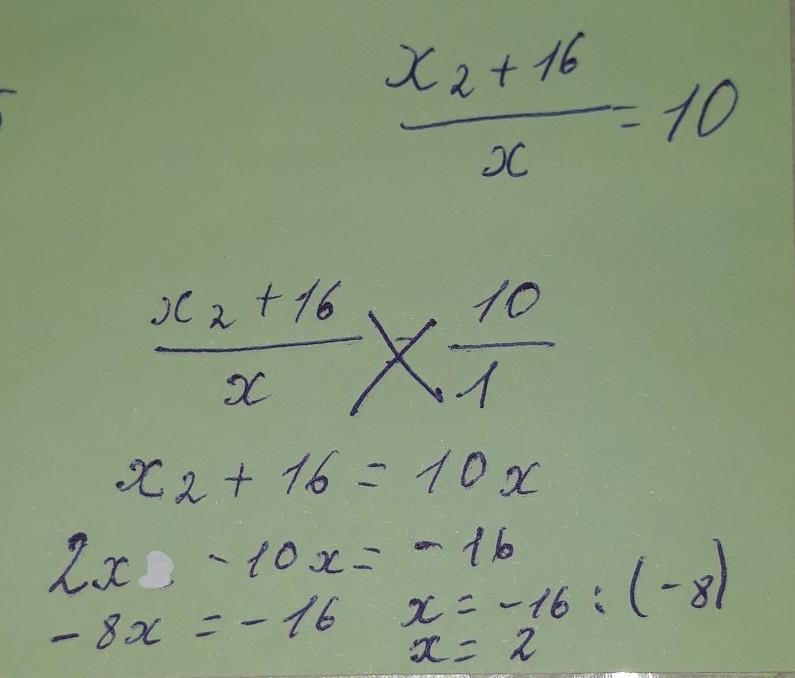 x₂ + 16
x
= 10
x₂ + 16
x
=
10
1
x₂ + 16 = 10x
2x - 10x = - 16
- 8x = - 16
x = -16 : (-8)
x = 2